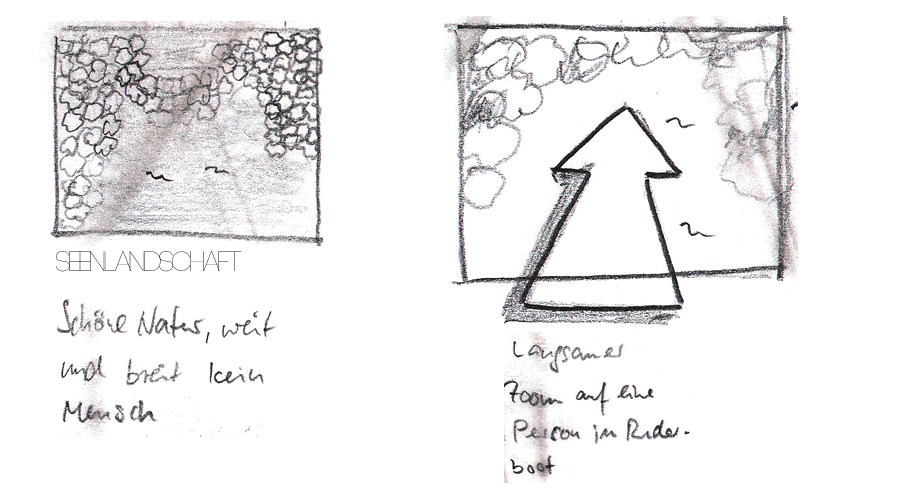 SEENLANDSCHAFT
Schöne Natur, weit
und breit kein
Mensch
Langsamer
Zoom auf eine
Person im Ruder-
boot